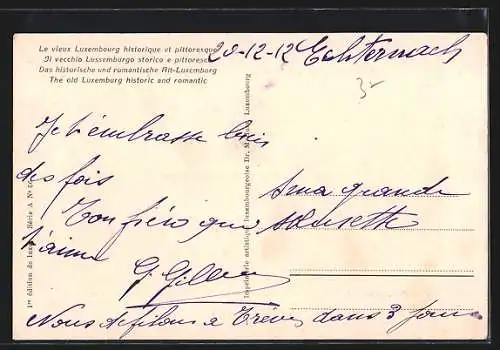 Le vieux Luxembourg historique et pittoresque
Il vecchio Lussemburgo storico e pittoresco
Das historische und romantische Alt-Luxemburg
The old Luxemburg historic and romantic
20-12-12 Echternach
3-
Je t'embrasse trois
des fois
Ton frère que
t'aime
G. Gillen
A ma grande
Nous defilons a Trèves dans 3 jours
1re édition de luxe Série A No
Imprimerie artistique Luxembourgeoise Dr. M. Luxembourg